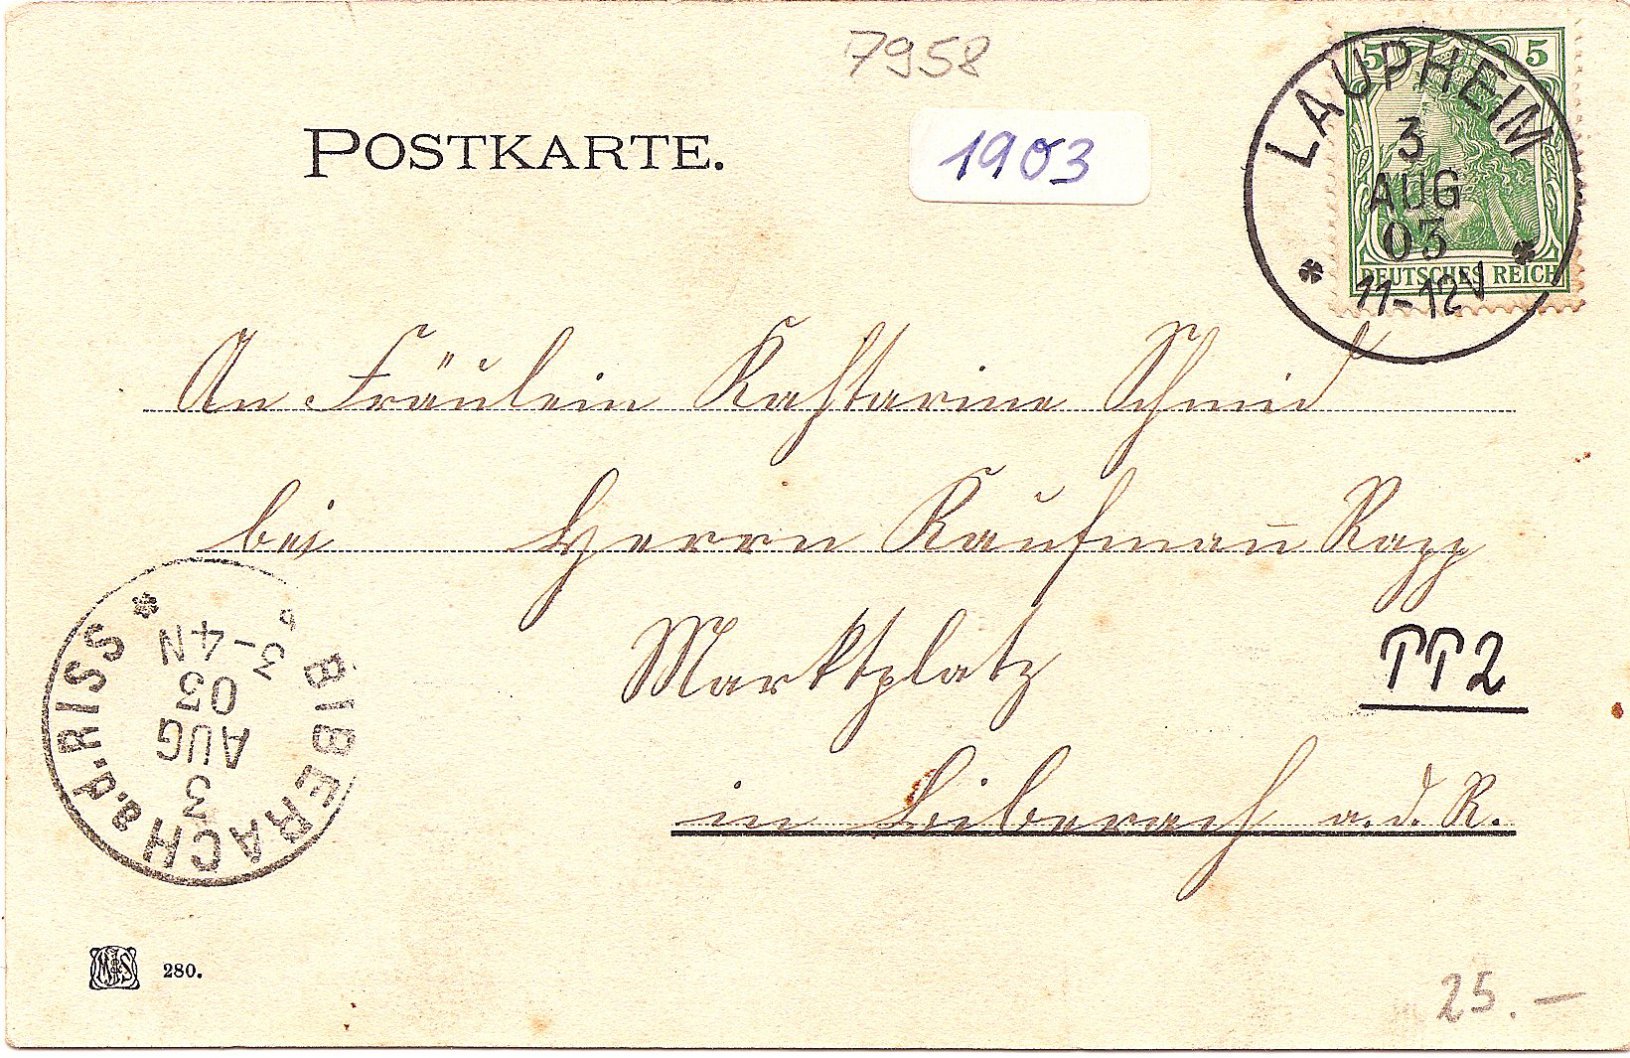 7958
POSTKARTE.
1903
5 5
LAUPHEIM
3
AUG
03
11-12V
DEUTSCHES REICH
An Fräulein Kahtarine Schmid
bei Herrn Kaufman̅ Rapp
Marktplatz
PP2
in Biberach a. d. R.
BIBERACH a.d. RISS
3
AUG
03
3-4N
280.
25.—